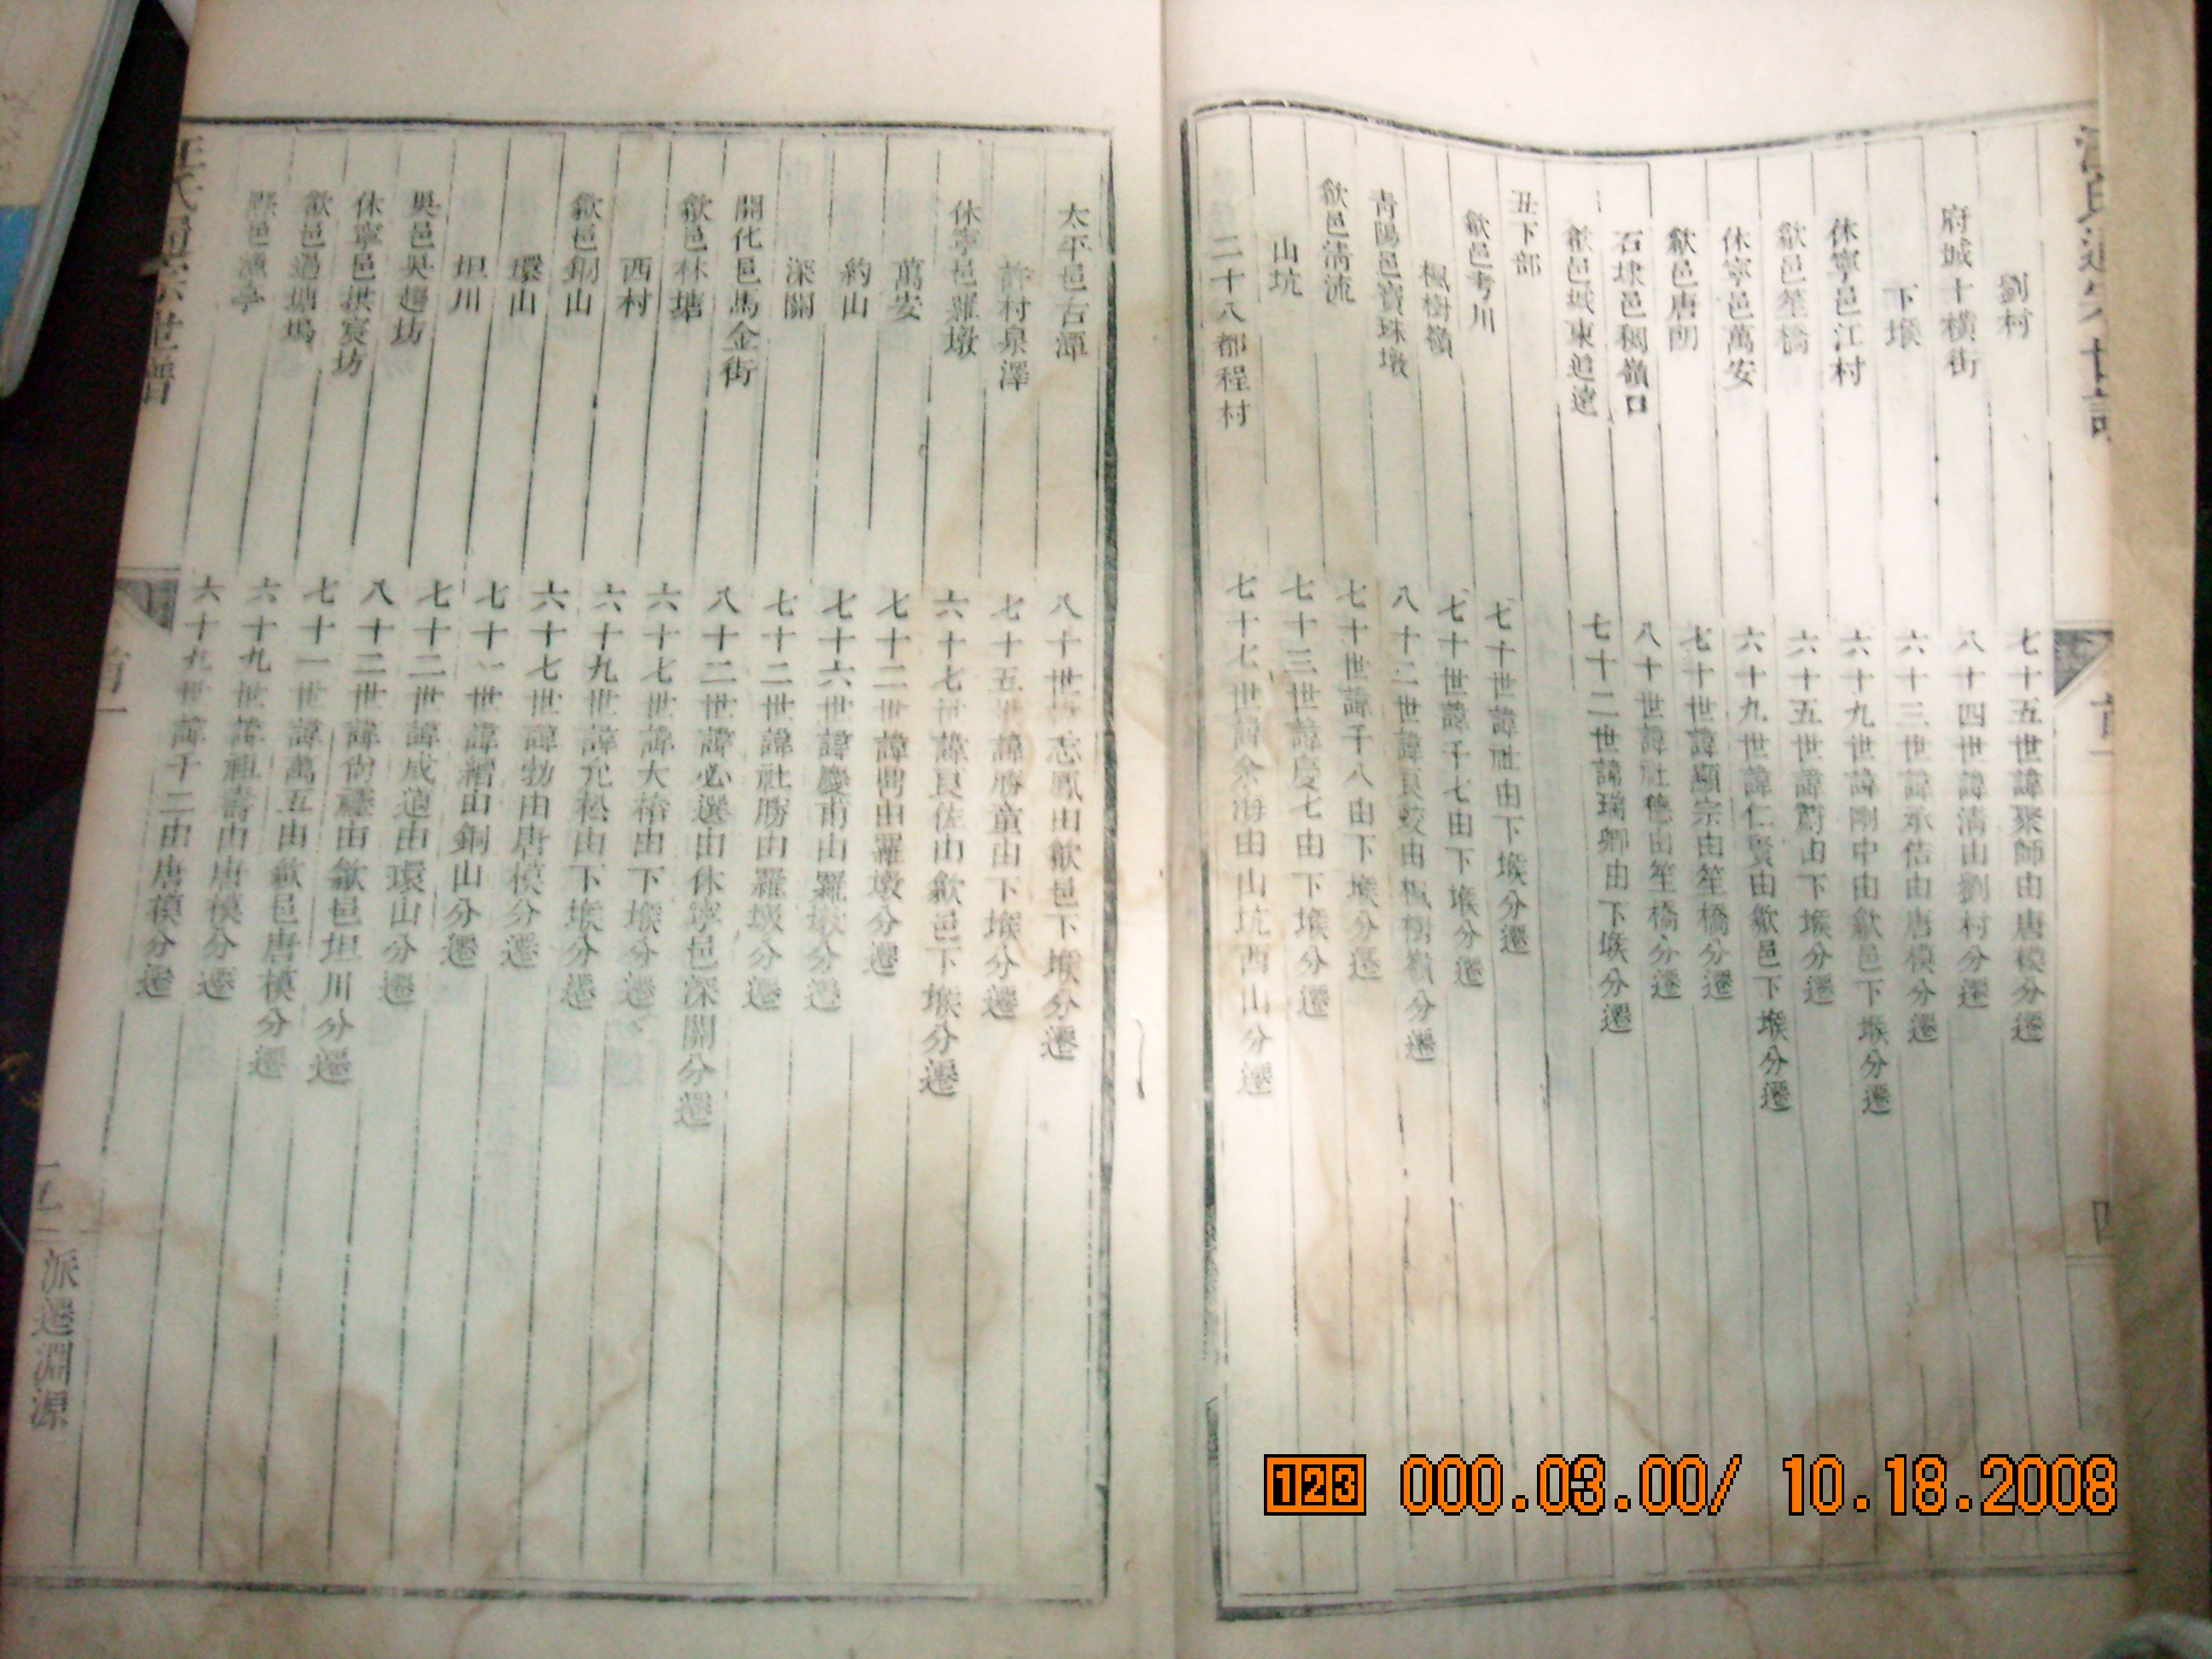 劉村 七十五世諱聚師由唐模分遷
府城十橫街 八十四世諱清由劉村分遷
下堠 六十三世諱承佶由唐模分遷
休寧邑江村 六十九世諱剛中由歙邑下堠分遷
歙邑笙橋 六十五世諱蔚由下堠分遷
休寧邑萬安 六十九世諱仁賢由歙邑下堠分遷
歙邑唐朗 七十世諱顯宗由笙橋分遷
石埭邑稠嶺口 八十世諱社德由笙橋分遷
歙邑城東追遠 七十二世諱瑞卿由下堠分遷
丑下部
歙邑考川 七十世諱社由下堠分遷
楓樹嶺 七十世諱千七由下堠分遷
青陽邑寶珠墩 八十二世諱良 由楓樹嶺分遷
歙邑清流 七十世諱千八由下堠分遷
山坑 七十三世諱慶七由下堠分遷
二十八都程村 七十七世諱余海由山坑西山分遷
四
太平邑古潭 八十世 志鳳由歙邑下堠分遷
許村泉澤 七十五世諱勝童由下堠分遷
休寧邑羅墩 六十七世諱良佐由歙邑下堠分遷
萬安 七十二世諱 由羅墩分遷
約山 七十六世諱慶甫由羅墩分遷
深關 七十二世諱社勝由羅墩分遷
開化邑馬金街 八十二世諱必選由休寧邑深關分遷
歙邑林塘 六十七世諱大椿由下堠分遷
西村 六十九世諱允松由下堠分遷
歙邑銅山 六十七世諱勃由唐模分遷
環山 七十一世諱 由銅山分遷
坦川 七十二世諱成道由環山分遷
吳邑吳趨坊 八十二世諱尙 由歙邑坦川分遷
休寧邑拱宸坊 七十一世諱萬五由歙邑唐模分遷
歙邑過塘塢 六十九世諱祖壽由唐模分遷
黟邑漁亭 六十九世諱千二由唐模分遷
汪氏通宗世譜 首一 五 派遷淵源
123 000.03.00/ 10.18.2008